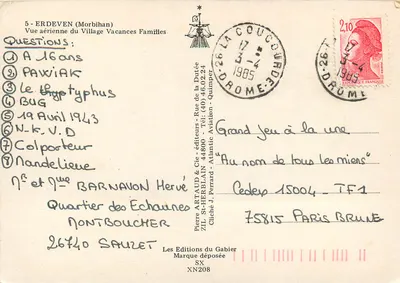 5 - ERDEVEN (Morbihan)
Vue aérienne du Village Vacances Familles
QUESTIONS:
① A 16 ans
② PAWIAK
③ Le typhus
④ BUG
⑤ 19 Avril 1943
⑥ N.K.V.D
⑦ Colporteur
⑧ Mandelieue
Mr et Mme BARNAVON Hervé
Quartier des Echaunes
MONTBOUCHER
26740 SAUZET
Pierre ARTAUD & Cie - éditeurs - Rue de la Dutée
ZIL St-HERBLAIN 44800 - Tél: (40) 46.02.24
Cliché J. Perrard - Atlantic Aviation - Quimper
26 - LA COUCOURDE
17 H
3 - 4
1985
DROME
2,10
17
3 - 4
1985
DROME
Grand jeu à la une
"Au nom de tous les miens"
Cedex 15004 - TF1
75815 PARIS BRUNE
Les Editions du Gabier
Marque déposée
SX
XN208